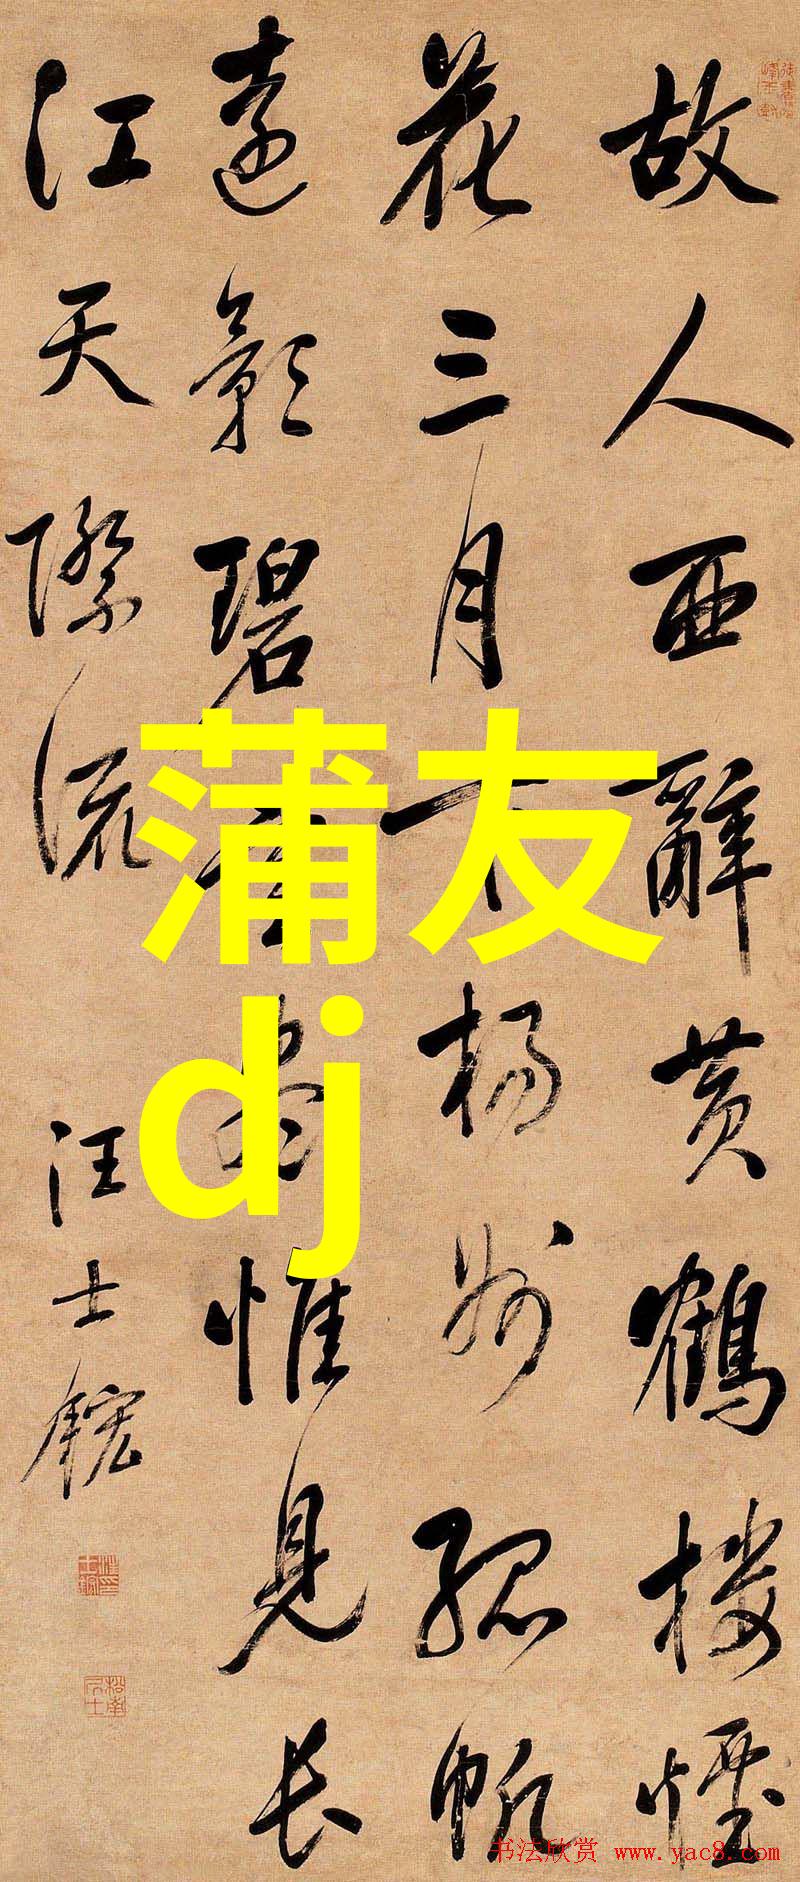 故人西辭黄鶴樓煙
花三月下揚州孤帆
遠影碧空盡惟見長
江天際流
汪士鋐
蒲友
dj
书法欣赏 www.yac8.com